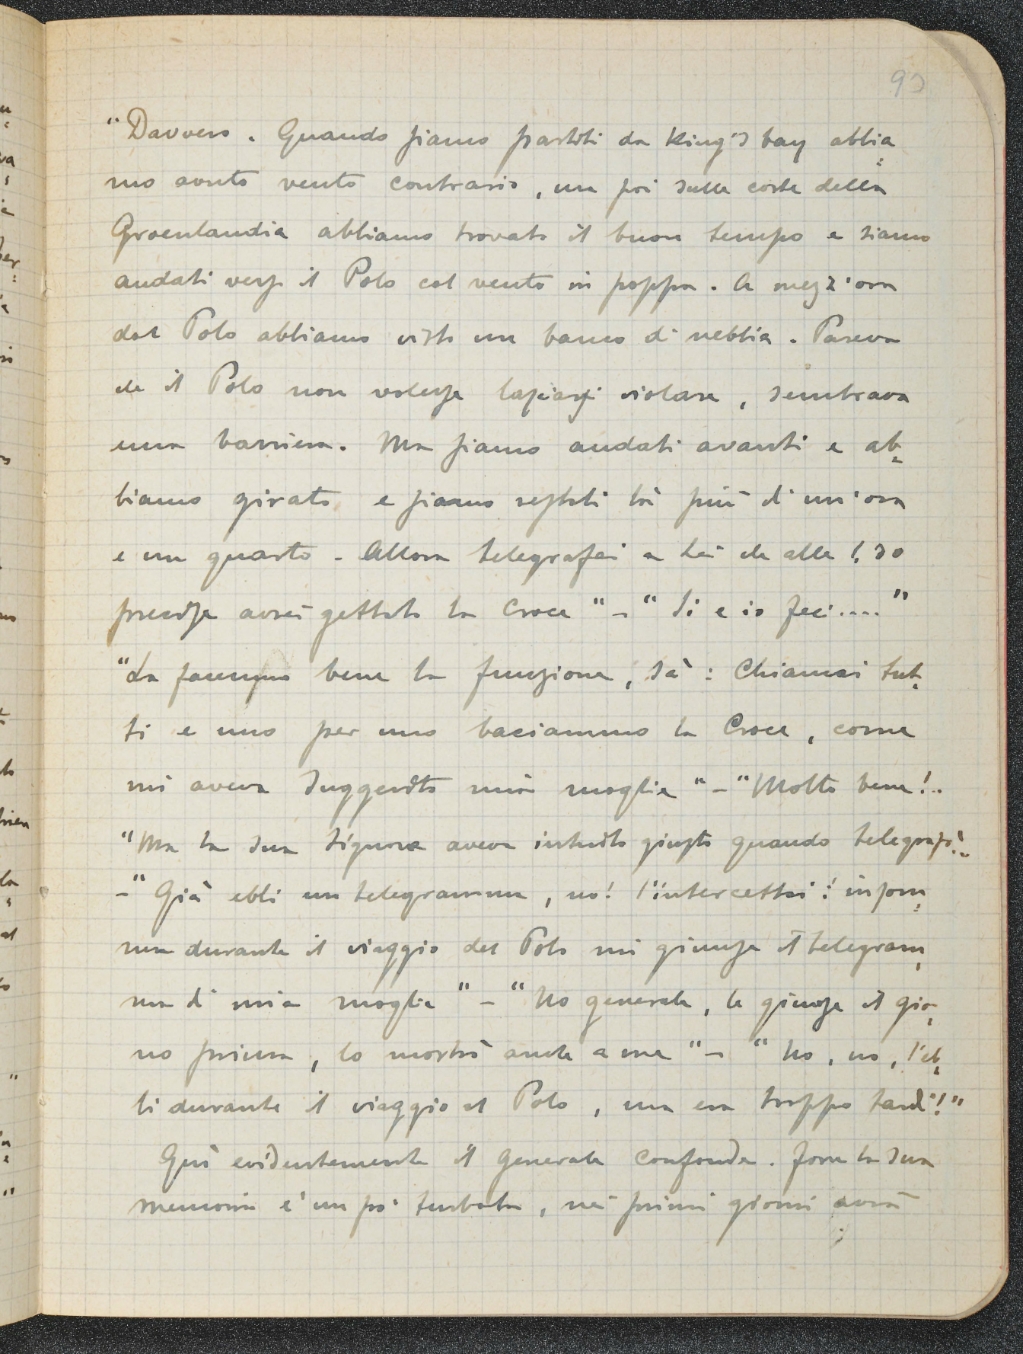 93
"Davvero. Quando siamo partiti da King's bay abbia
mo avuto vento contrario, ma poi sulle coste della
Groenlandia abbiamo trovato il buon tempo e siamo
andati verso il Polo col vento in poppa. A mezz'ora
dal Polo abbiamo visto un banco di nebbia. Pareva
che il Polo non volesse lasciarsi violare, sembrava
una barriera. Ma siamo andati avanti e ab=
biamo girato e siamo restati là più di un'ora
e un quarto - Allora telegrafai a lei che alle 1,30
precise avrei gettato la Croce" - "Si e io feci...."
"La facemmo bene la funzione, sà: Chiamai tut=
ti e uno per uno baciammo la Croce, come
mi aveva suggerito mia moglie" - "Molto bene!..
"Ma la sua Signora aveva intuito giusto quando telegrafò!..
-" Già ebbi un telegramma, no! l'intercettai!
ma durante il viaggio del Polo mi giunse il telegram=
ma di mia moglie" - "No generale, le giunse il gior=
no prima, lo mostrò anche a me" - "No, no, l'eb=
bi durante il viaggio al Polo, ma era troppo tardi!"
Quì evidentemente il generale confonde. Forse la sua
memoria è un po' turbata, nei primi giorni avrà